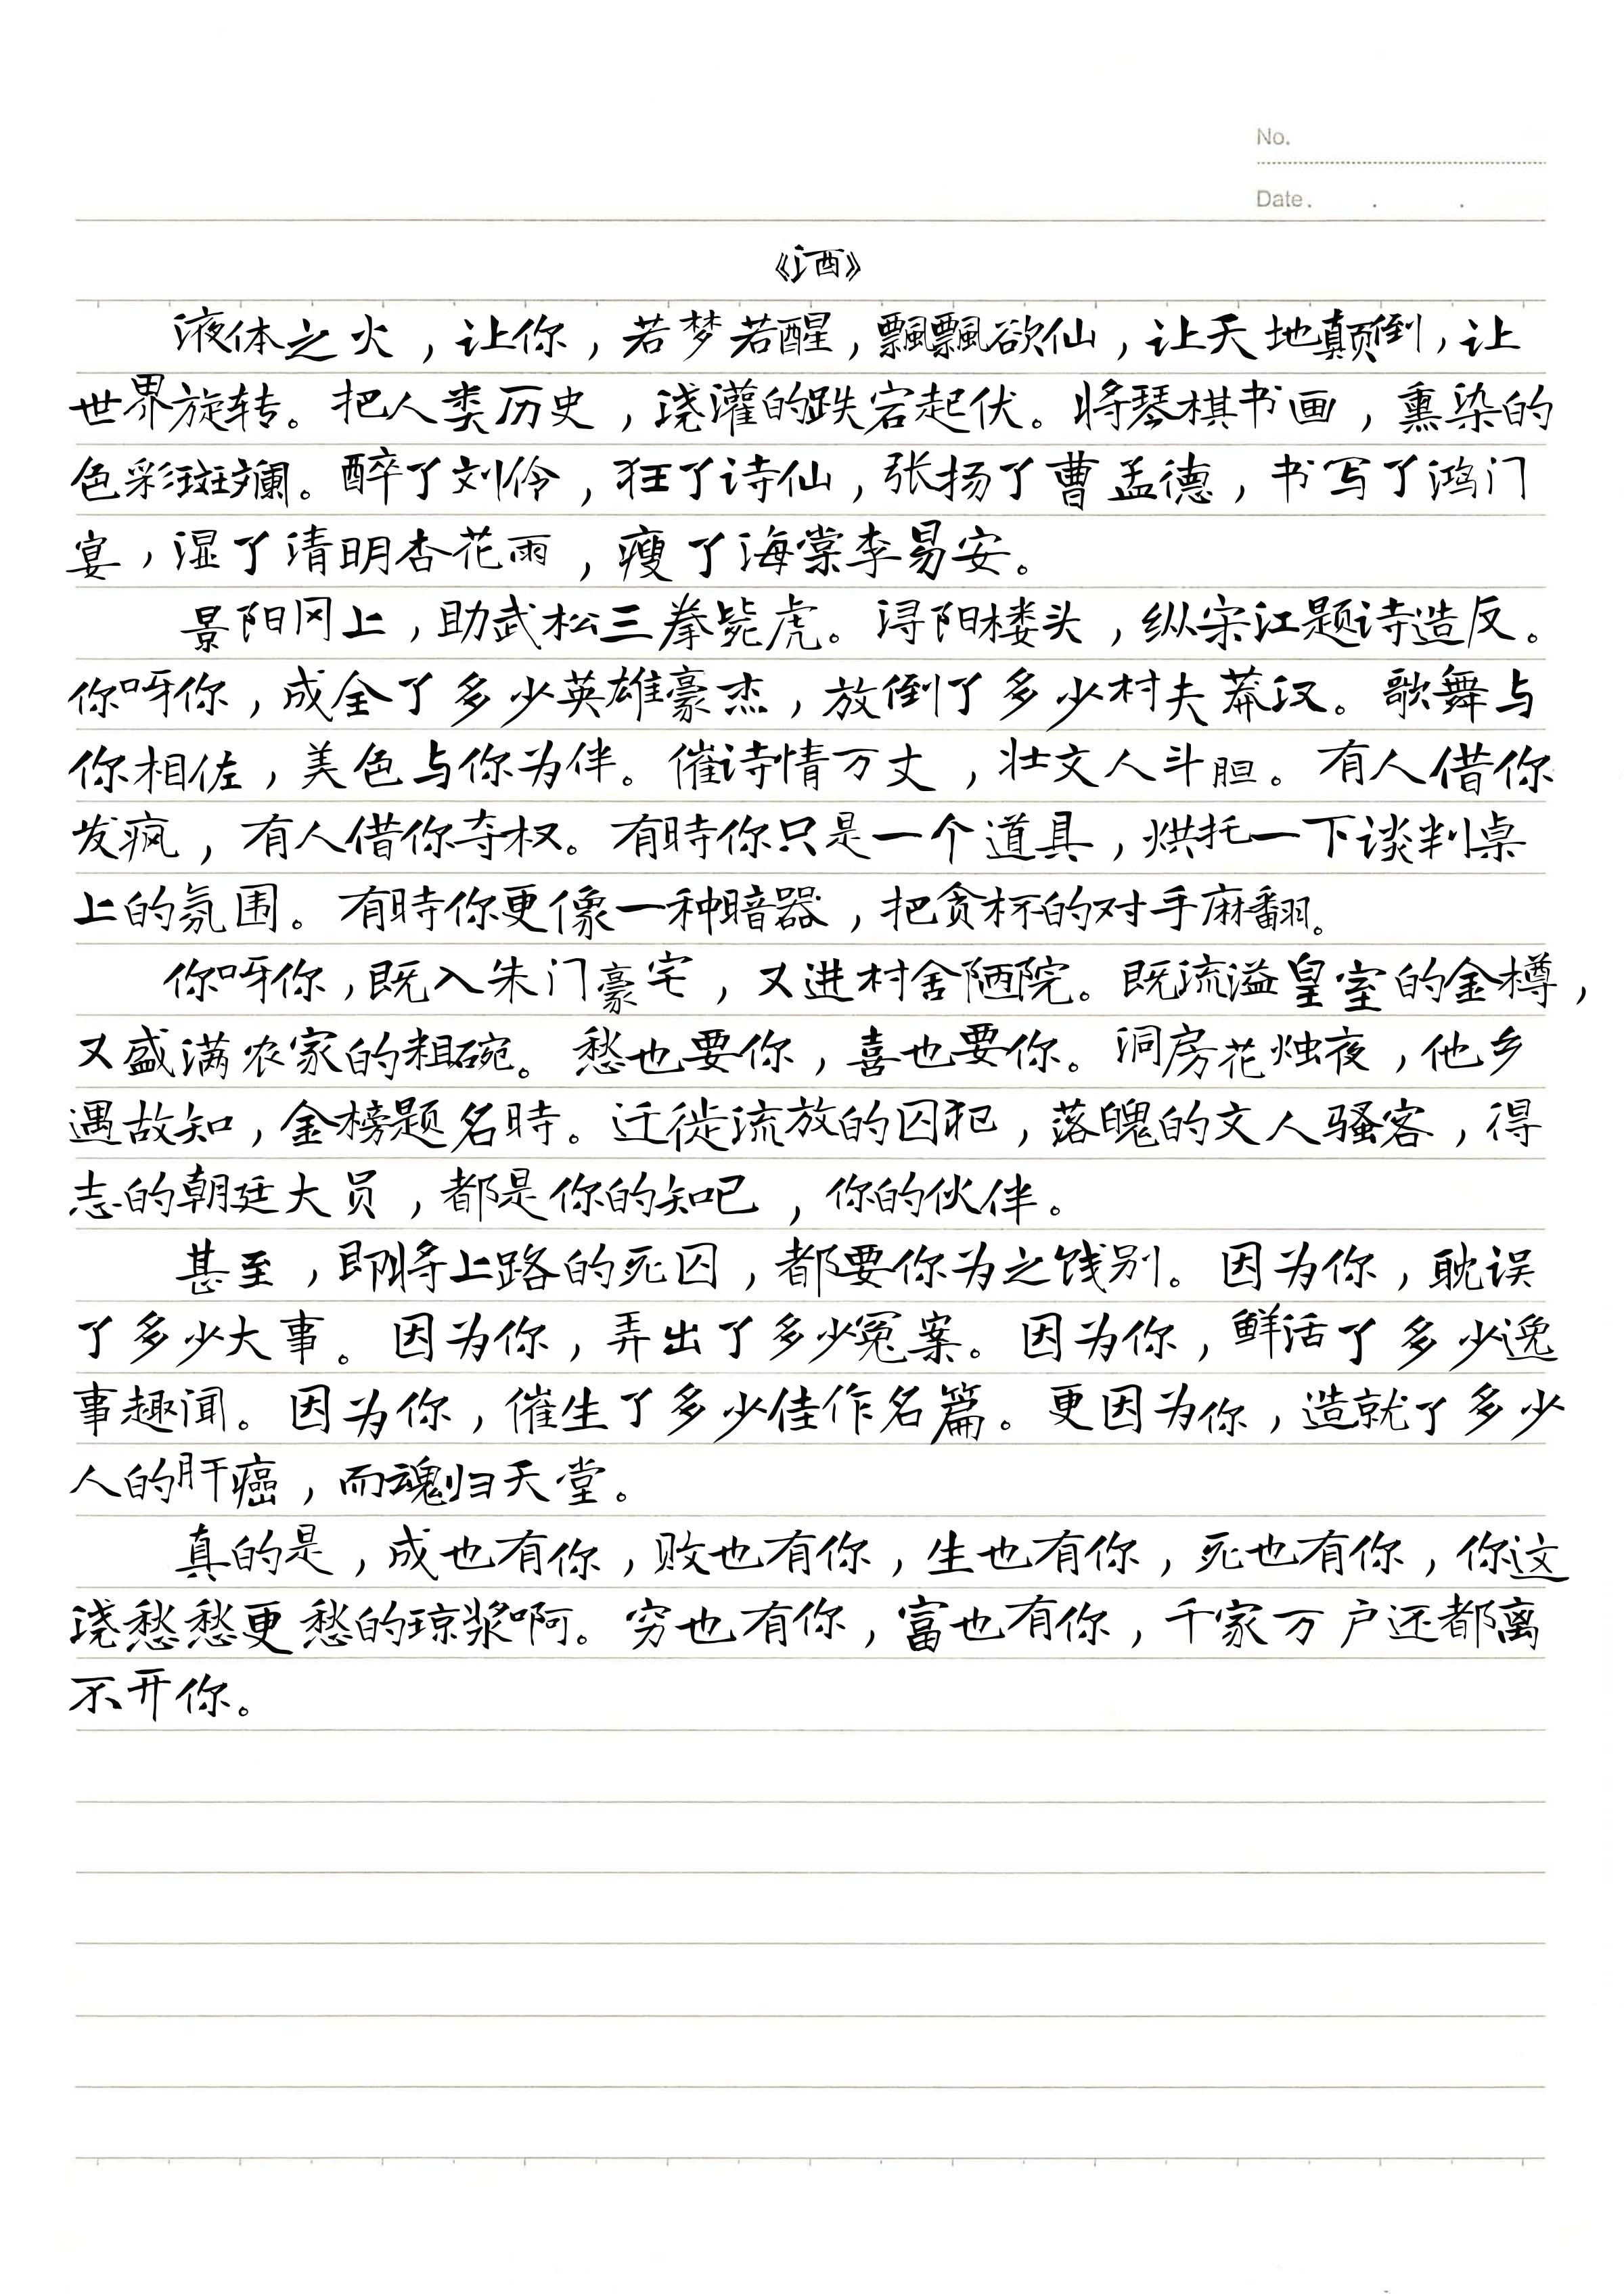 No.
Date. . .
《酒》
液体之火，让你，若梦若醒，飘飘欲仙，让天地颠倒，让
世界旋转。把人类历史，浇灌的跌宕起伏。将琴棋书画，熏染的
色彩斑斓。醉了刘伶，狂了诗仙，张扬了曹孟德，书写了鸿门
宴，湿了清明杏花雨，瘦了海棠李易安。
景阳冈上，助武松三拳毙虎。浔阳楼头，纵宋江题诗造反。
你呀你，成全了多少英雄豪杰，放倒了多少村夫莽汉。歌舞与
你相佐，美色与你为伴。催诗情万丈，壮文人斗胆。有人借你
发疯，有人借你夺权。有時你只是一个道具，烘托一下谈判桌
上的氛围。有時你更像一种暗器，把贪杯的对手麻翻。
你呀你，既入朱门豪宅，又进村舍陋院。既流溢皇室的金樽，
又盛满农家的粗碗。愁也要你，喜也要你。洞房花烛夜，他乡
遇故知，金榜题名時。迁徙流放的囚犯，落魄的文人骚客，得
志的朝廷大员，都是你的知己，你的伙伴。
甚至，即将上路的死囚，都要你为之饯别。因为你，耽误
了多少大事。因为你，弄出了多少冤案。因为你，鲜活了多少逸
事趣闻。因为你，催生了多少佳作名篇。更因为你，造就了多少
人的肝癌，而魂归天堂。
真的是，成也有你，败也有你，生也有你，死也有你，你这
浇愁愁更愁的琼浆啊。穷也有你，富也有你，千家万户还都离
不开你。